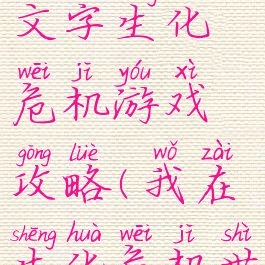 文字生化
wēi jī yóu xì
危机游戏
gōng lüè wǒ zài
攻略(我在
shēng huà wēi jī shì
生化危机世